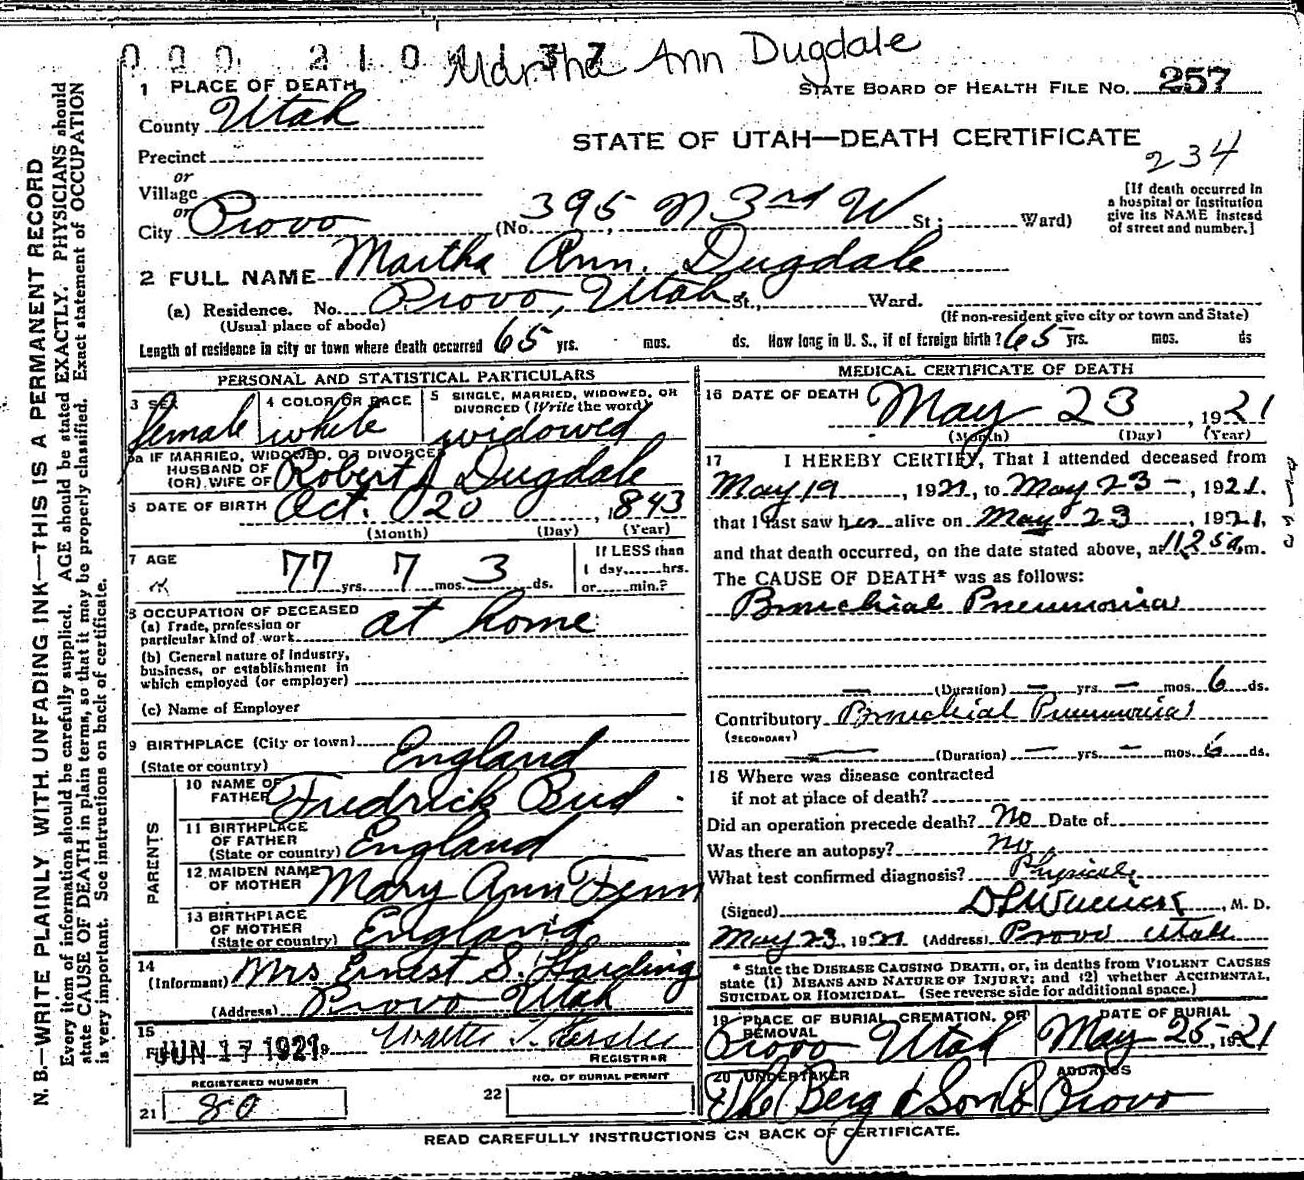 000 2104137
Martha Ann Dugdale
1 PLACE OF DEATH
STATE BOARD OF HEALTH FILE NO. 257
County Utah
STATE OF UTAH—DEATH CERTIFICATE
234
Precinct
or
Village
or
City Provo (No. 395 N 3rd W St; Ward)
[If death occurred in
a hospital or institution
give its NAME instead
of street and number.]
2 FULL NAME Martha Ann Dugdale
(a) Residence. No. Provo, Utah St., Ward.
(Usual place of abode) (If non-resident give city or town and State)
Length of residence in city or town where death occurred 65 yrs. mos. ds. How long in U. S., if of foreign birth? 65 yrs. mos. ds
PERSONAL AND STATISTICAL PARTICULARS
3 SEX female
4 COLOR OR RACE white
5 SINGLE, MARRIED, WIDOWED, OR
DIVORCED (Write the word)
widowed
5a IF MARRIED, WIDOWED, OR DIVORCED
HUSBAND OF
(OR) WIFE OF Robert J Dugdale
6 DATE OF BIRTH Oct. 20, 1843
(Month) (Day) (Year)
7 AGE 77 yrs. 7 mos. 3 ds.
If LESS than
1 day......hrs.
or......min.?
8 OCCUPATION OF DECEASED
(a) Trade, profession or
particular kind of work at home
(b) General nature of industry,
business, or establishment in
which employed (or employer)
(c) Name of Employer
9 BIRTHPLACE (City or town)
(State or country) England
PARENTS
10 NAME OF
FATHER Fredrick Bird
11 BIRTHPLACE
OF FATHER
(State or country) England
12 MAIDEN NAME
OF MOTHER Mary Ann Fenn
13 BIRTHPLACE
OF MOTHER
(State or country) England
14
(Informant) Mrs Ernest S. Harding
(Address) Provo Utah
15
JUN 17 1921 Walter T.
REGISTRAR
REGISTERED NUMBER
21 80
NO. OF BURIAL PERMIT
22
MEDICAL CERTIFICATE OF DEATH
16 DATE OF DEATH May 23, 1921
(Month) (Day) (Year)
17 I HEREBY CERTIFY, That I attended deceased from
May 19, 1921, to May 23, 1921.
that I last saw her alive on May 23, 1921,
and that death occurred, on the date stated above, at 1125a m.
The CAUSE OF DEATH* was as follows:
Bronchial Pneumonia
(Duration) — yrs. — mos. 6 ds.
Contributory Bronchial Pneumonia
(SECONDARY)
(Duration) — yrs. — mos. 6 ds.
18 Where was disease contracted
if not at place of death?
Did an operation precede death? No Date of
Was there an autopsy? No
What test confirmed diagnosis? Physical
(Signed) M. D.
May 23, 1921 (Address) Provo Utah
* State the DISEASE CAUSING DEATH, or, in deaths from VIOLENT CAUSES
state (1) MEANS AND NATURE OF INJURY; and (2) whether ACCIDENTAL,
SUICIDAL OR HOMICIDAL. (See reverse side for additional space.)
19 PLACE OF BURIAL, CREMATION, OR
REMOVAL
Provo Utah
DATE OF BURIAL
May 25, 1921
20 UNDERTAKER
The Berg & Sons Co
ADDRESS
Provo
READ CAREFULLY INSTRUCTIONS ON BACK OF CERTIFICATE.
N. B.—WRITE PLAINLY WITH UNFADING INK—THIS IS A PERMANENT RECORD
Every item of information should be carefully supplied. AGE should be stated EXACTLY. PHYSICIANS should
state CAUSE OF DEATH in plain terms, so that it may be properly classified. Exact statement of OCCUPATION
is very important. See instructions on back of certificate.